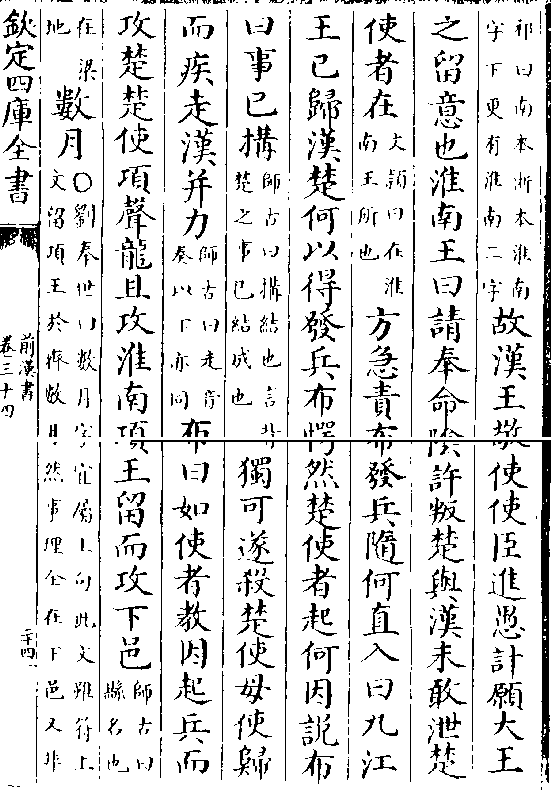 祁曰南本浙本淮南
字下更有淮南二字
故漢王敬使使臣進愚計願大王
之留意也淮南王曰請奉命陰許叛楚與漢未敢泄楚
使者在
文穎曰在淮
南王所也
方急責布發兵隨何直入曰九江
王已歸漢楚何以得發兵布愕然楚使者起何因說布
曰事已搆
師古曰搆結也言背
楚之事已結成也
獨可遂殺楚使毋使歸
而疾走漢并力
師古曰走音
奏以下亦同
布曰如使者教因起兵而
攻楚楚使項聲龍且攻淮南項王留而攻下邑
師古曰
縣名也
在梁
地
數月
○劉奉世曰數月字宜屬上句此文雖符上
文留項王於齊數月然事理全在下邑又非
欽定四庫全書
前漢書
卷三十四
二十四